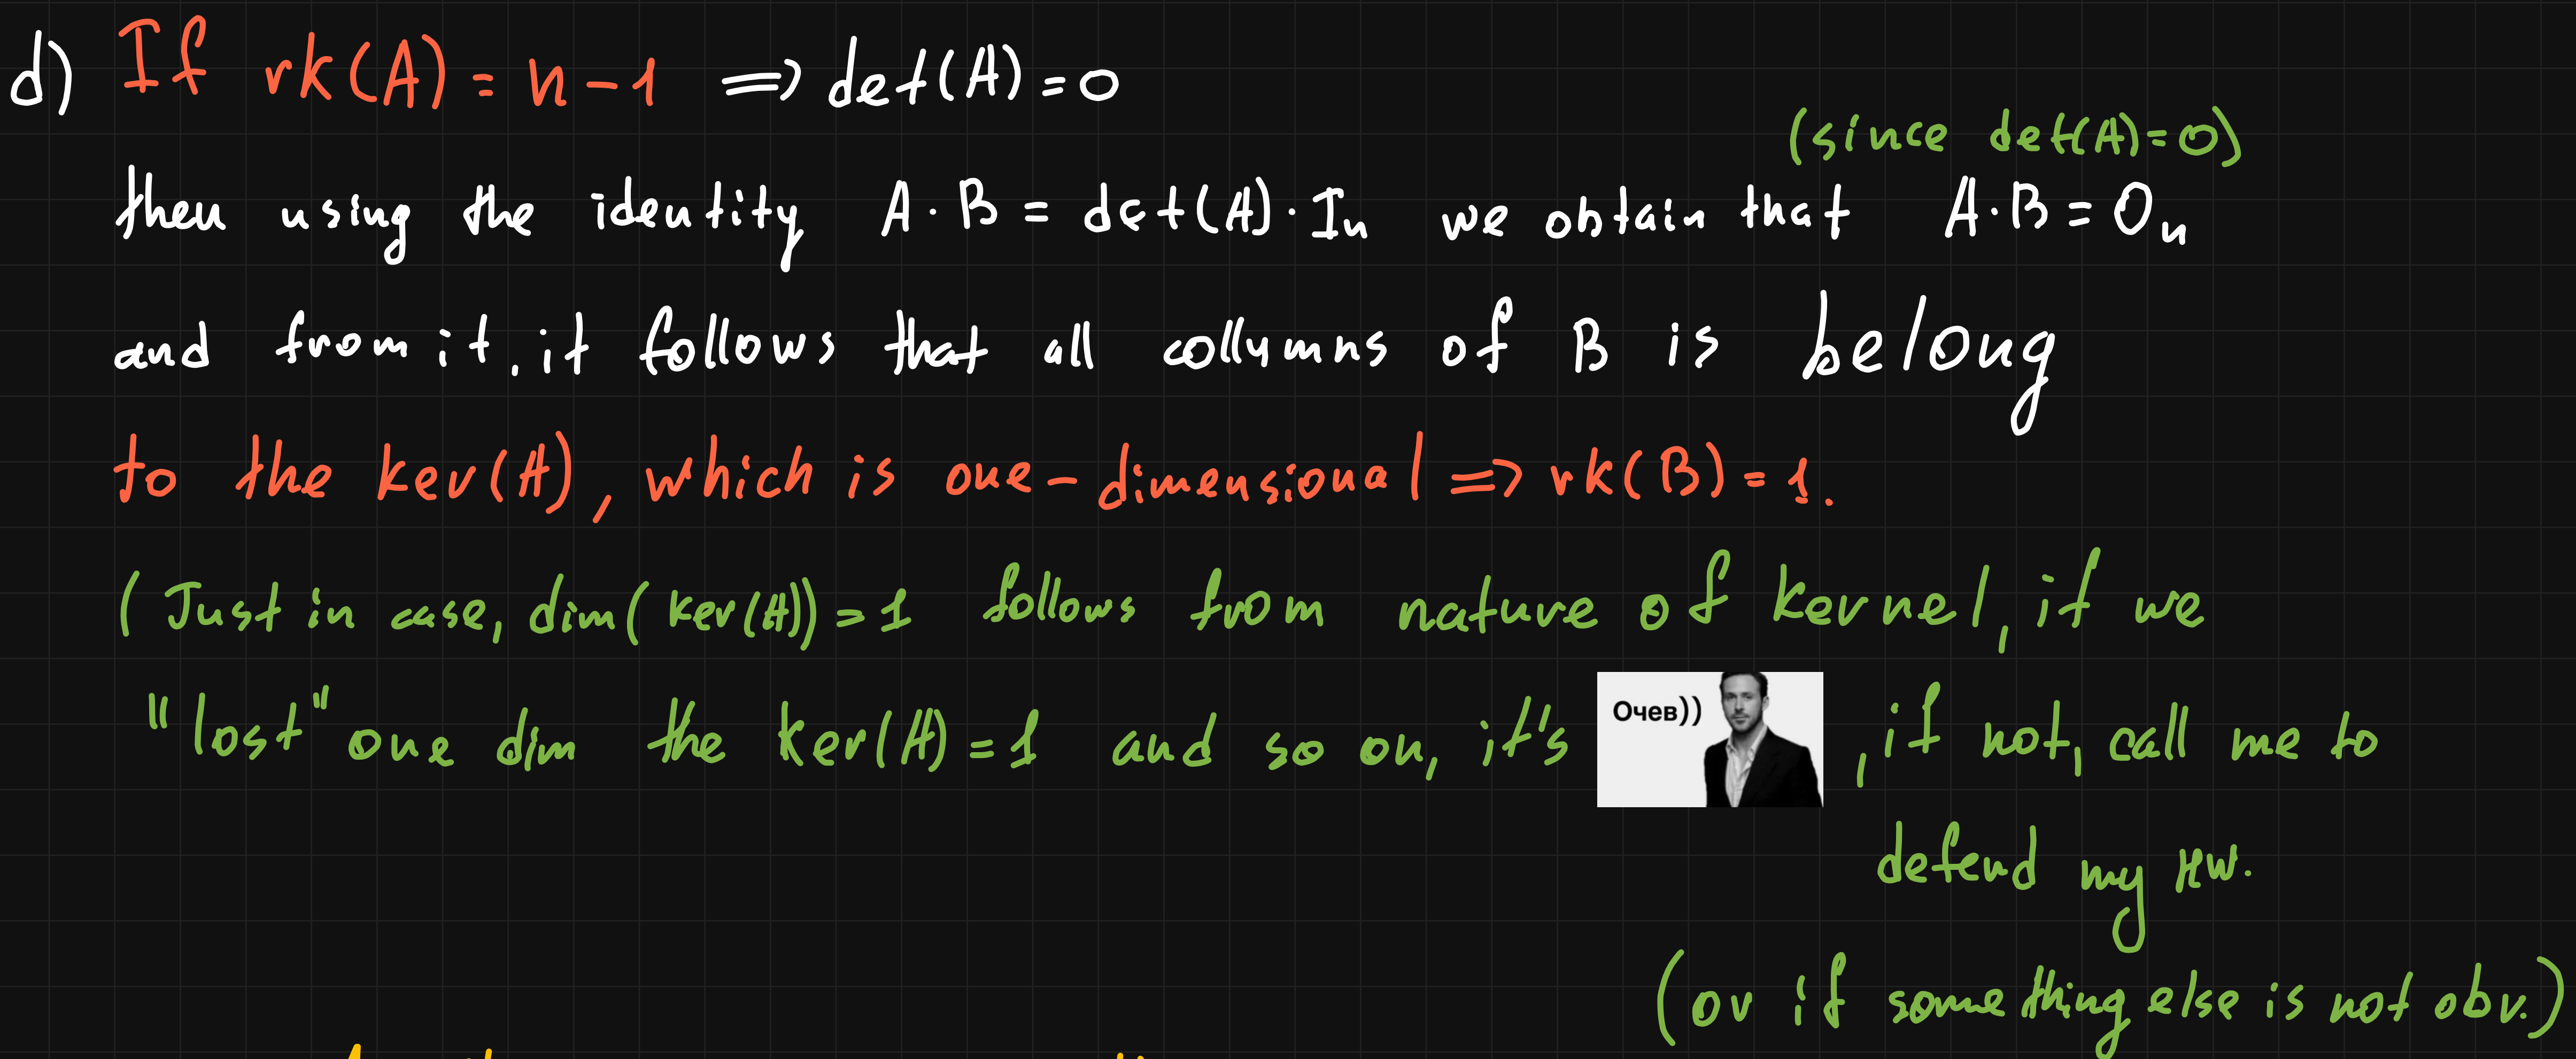 d) If rk(A) = n - 1 ⟹ det(A) = 0
(since det(A) = 0)
then using the identity A · B = det(A) · In we obtain that A · B = On
and from it, it follows that all collumns of B is belong
to the ker(A), which is one-dimensional ⟹ rk(B) = 1.
(Just in case, dim(ker(A)) = 1 follows from nature of kernel, if we
"lost" one dim the ker(A) = 1 and so on, it's Очев)) , if not, call me to
defend my HW.
(or if something else is not obv.)